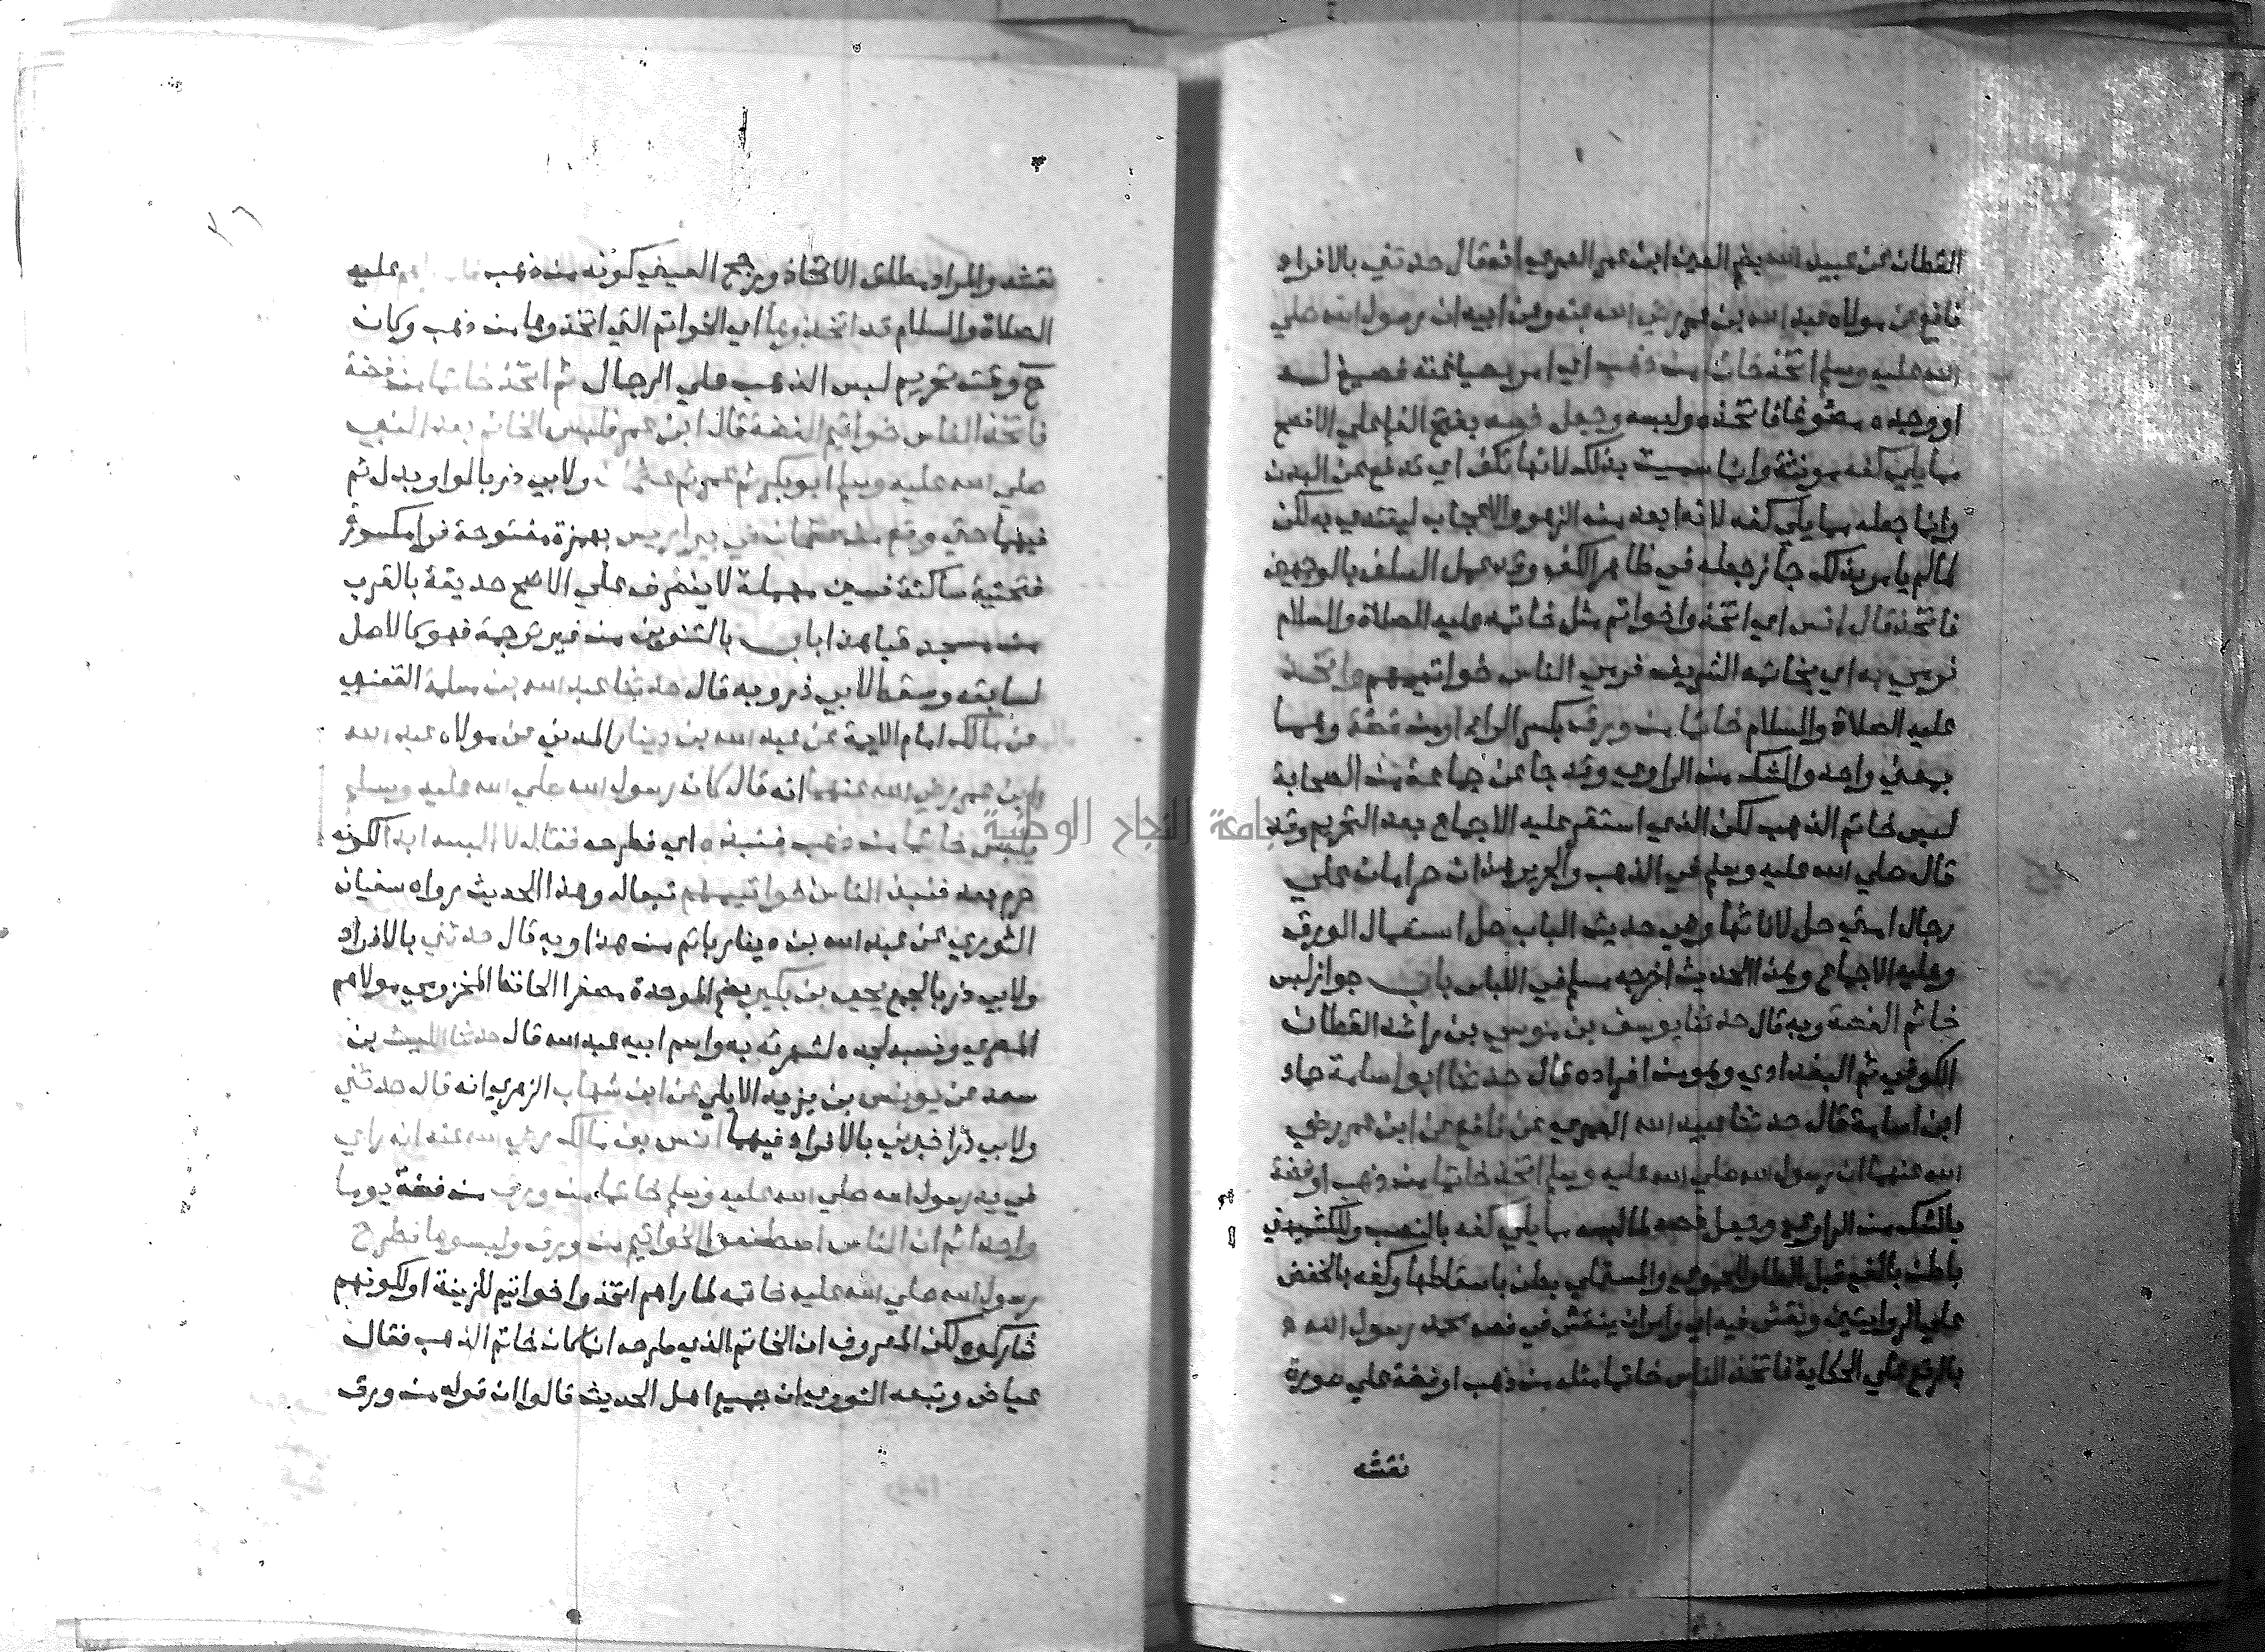 القطان عن عبيد الله بضم العين ابن عمر العمري انه قال حدثني بالافراد
نافع عن مولاه عبد الله بن عمر رضي الله عنه وعن ابيه ان رسول الله صلي
الله عليه وسلم اتخذ خاتما من ذهب اي امر بصياغته فصيغ له
او وجده مصوغا فاتخذه ولبسه وجعل فصه بفتح الفا علي الافصح
مما يلي كفه مونثة وانما سميت بذلك لانها تكف اي تدفع عن البدن
وانما جعله مما يلي كفه لانه ابعد من الزهو والاعجاب ليقتدي به لكن
لما لم يامر بذلك جاز جعله في ظاهر الكف وقد عمل السلف بالوجهين
فاتخذ قال انس اي اتخذوا خواتم مثل خاتمه عليه الصلاة والسلام
فرمي به اي بخاتمه الشريف فرمي الناس خواتيمهم واتخذ
عليه الصلاة والسلام خاتما من ورق بكسر الراء او من فضة وهما
بمعني واحد والشك من الراوي وقد جا عن جماعة من الصحابة
لبس خاتم الذهب لكن الذي استقر عليه الاجماع بعد التحريم وقد
قال صلي الله عليه وسلم في الذهب والحرير هذان حرامان علي
رجال امتي حل لاناثها وفي حديث الباب حل استعمال الورق
وعليه الاجماع وهذا الحديث اخرجه مسلم في اللباس باب جواز لبس
خاتم الفضة وبه قال حدثنا يوسف بن موسي بن راشد القطان
الكوفي ثم البغدادي وهو من افراده قال حدثنا ابو اسامة حماد
ابن اسامة قال حدثنا عبيد الله العمري عن نافع عن ابن عمر رضي
الله عنهما ان رسول الله صلي الله عليه وسلم اتخذ خاتما من ذهب او فضة
بالشك من الراوي وجعل فصه لما لبسه مما يلي كفه بالنصب وللكشميهني
باطن بالف قبل الطا وللحموي والمستملي بطن باسقاطها وكفه بالخفض
علي الروايتين ونقش فيه اي وامر ان ينقش في فصه محمد رسول الله
بالرفع علي الحكاية فاتخذ الناس خاتما مثله من ذهب او فضة علي صورة
نقشه
٣٦
نقشه والمراد مطلق الاتخاذ ويرجح العيني كونه من ذهب عليه
الصلاة والسلام قد اتخذوها اي الخواتم التي اتخذوها من ذهب وكان
ح وقت تحريم لبس الذهب علي الرجال ثم اتخذ خاتما من فضة
فاتخذ الناس خواتيم الفضة قال ابن عمر فلبس الخاتم بعد النبي
صلي الله عليه وسلم ابو بكر ثم عمر ثم عثمان ولابي ذر بالواو بدل ثم
فيهما حتي وقع من عثمان في بير اريس بهمزة مفتوحة فرا مكسورة
فتحتية ساكنة فسين مهملة لا ينصرف علي الاصح حديقة بالقرب
من مسجد قبا هذا باب بالتنوين من غير ترجمة فهو كالاصل
لسابقه وسقط لابي ذر وبه قال حدثنا عبد الله بن مسلمة القعنبي
عن مالك امام الايمة عن عبد الله بن دينار المدني عن مولاه عبد الله
ابن عمر رضي الله عنهما انه قال كان رسول الله صلي الله عليه وسلم
يلبس خاتما من ذهب فنبذه اي فطرحه فقال لا البسه ابدا لكونه
حرم بعد فنبذ الناس خواتيمهم تبعا له وهذا الحديث رواه سفيان
الثوري عن عبد الله بن دينار باتم من هذا وبه قال حدثني بالافراد
ولابي ذر بالجمع يحيي بن بكير بضم الموحدة مصغرا الحافظ المخزومي مولاهم
المصري ونسبه لجده لشهرته به واسم ابيه عبد الله قال حدثنا الليث بن
سعد عن يونس بن يزيد الايلي عن ابن شهاب الزهري انه قال حدثني
ولابي ذر اخبرني بالافراد فيهما انس بن مالك رضي الله عنه انه راي
في يد رسول الله صلي الله عليه وسلم خاتما من ورق من فضة يوما
واحدا ثم ان الناس اصطنعوا الخواتيم من ورق ولبسوها فطرح
رسول الله صلي الله عليه خاتمه لما راهم اتخذوا خواتيم للزينة او لكونهم
شاركوه ولكن المعروف ان الخاتم الذي طرحه انما كان خاتم الذهب فقال
عياض وتبعه النووي ان جميع اهل الحديث قالوا ان قوله من ورق
جامعة النجاح الوطنية